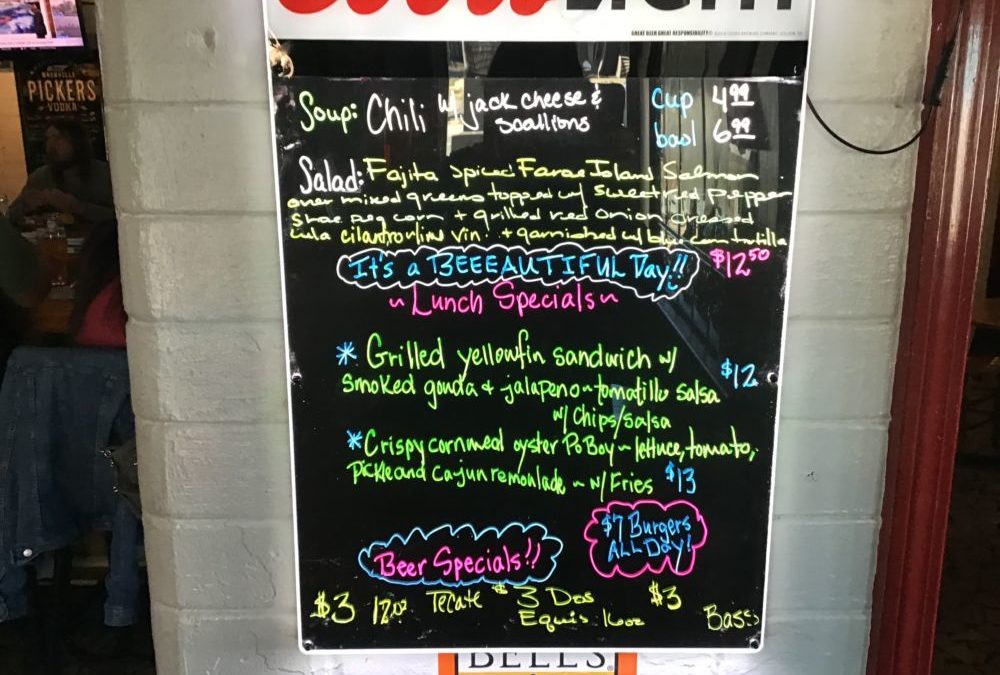 Coors LIGHT
GREAT BEER GREAT RESPONSIBILITY
NASHVILLE
PICKERS
VODKA
Soup: Chili w/ jack cheese & scallions
Cup 4.99
bowl 6.99
Salad: Fajita Spiced Faroe Island Salmon
over mixed greens topped w/ Sweet red pepper
Shoe peg corn + grilled red onion Dressed
cilantro lime vin. + garnished w/ blue corn tortilla
It's a BEEEAUTIFUL Day!! $12.50
~ Lunch Specials ~
* Grilled yellowfin sandwich w/
smoked gouda & jalapeno ~ tomatillo salsa $12
w/ Chips/salsa
* Crispy cornmeal oyster Po Boy ~ lettuce, tomato,
pickle and Cajun remoulade ~ w/ Fries $13
$7 Burgers
ALL Day!
Beer Specials!!
$3 12oz Tecate $3 Dos Equis 16oz $3 Bass
BELL'S